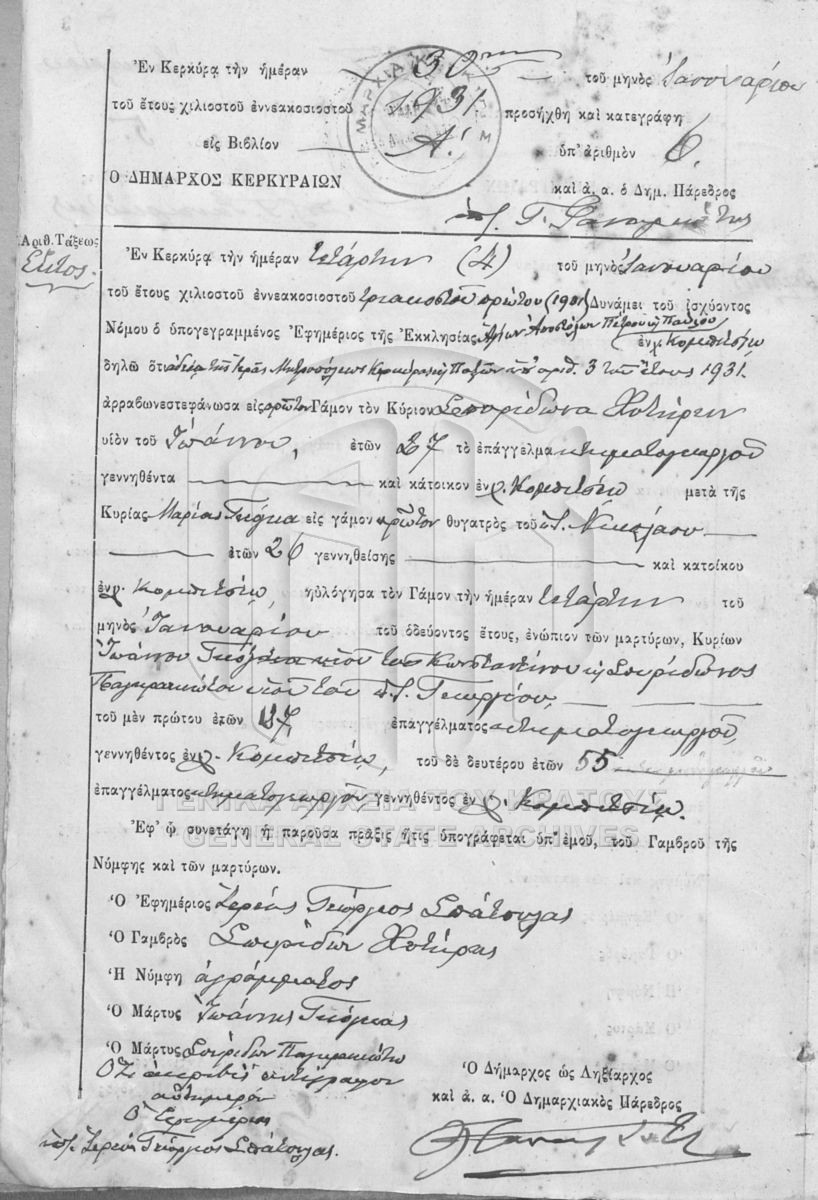 Ἐν Κερκύρᾳ τὴν ἡμέραν 30ην τοῦ μηνὸς Ἰανουαρίου
τοῦ ἔτους χιλιοστοῦ ἐννεακοσιοστοῦ 1931 προσήχθη καὶ κατεγράφη
εἰς Βιβλίον Α΄. ὑπ' ἀριθμὸν 6.
Ο ΔΗΜΑΡΧΟΣ ΚΕΡΚΥΡΑΙΩΝ καὶ ἀ. α. ὁ Δημ. Πάρεδρος
Ἀριθ. Τάξεως
Ἕκτος.
Ἐν Κερκύρᾳ τὴν ἡμέραν τετάρτην (4) τοῦ μηνὸς Ἰανουαρίου
τοῦ ἔτους χιλιοστοῦ ἐννεακοσιοστοῦ τριακοστοῦ πρώτου (1931) Δυνάμει τοῦ ἰσχύοντος
Νόμου ὁ ὑπογεγραμμένος Ἐφημέριος τῆς Ἐκκλησίας Ἁγίων Ἀποστόλων Πέτρου κ Παύλου
ἐν χ. Κομπιτσίῳ
δηλῶ ὅτι ἀδείᾳ τῆς Ἱερᾶς Μητροπόλεως Κερκύρας κ Παξῶν ὑπ' ἀριθ. 3 τοῦ ἔτους 1931.
ἀρραβωνεστεφάνωσα εἰς πρῶτον Γάμον τὸν Κύριον Σπυρίδωνα Χυτήρην
υἱὸν τοῦ Ἰωάννου, ἐτῶν 27 τὸ ἐπάγγελμα κτηματογεωργοῦ
γεννηθέντα καὶ κάτοικον ἐν χ. Κομπιτσίῳ μετὰ τῆς
Κυρίας Μαρίας Γκόγκα εἰς γάμον πρῶτον θυγατρὸς τοῦ π. Νικολάου
ἐτῶν 26 γεννηθείσης καὶ κατοίκου
ἐν χ. Κομπιτσίῳ, ηὐλόγησα τὸν Γάμον τὴν ἡμέραν τετάρτην τοῦ
μηνὸς Ἰανουαρίου τοῦ ὁδεύοντος ἔτους, ἐνώπιον τῶν μαρτύρων, Κυρίων
Ἰωάννου υἱοῦ τοῦ Κωνσταντίνου κ Σπυρίδωνος
Παγκρατιώτου υἱοῦ τοῦ Γεωργίου,
τοῦ μὲν πρώτου ἐτῶν 37, ἐπαγγέλματος κτηματογεωργοῦ,
γεννηθέντος ἐν χ. Κομπιτσίῳ, τοῦ δὲ δευτέρου ἐτῶν 55
ἐπαγγέλματος κτηματογεωργοῦ γεννηθέντος ἐν χ. Κομπιτσίῳ.
ΓΕΝΙΚΑ ΑΡΧΕΙΑ ΤΟΥ ΚΡΑΤΟΥΣ
GENERAL STATE ARCHIVES
Ἐφ' ᾧ συνετάγη ἡ παροῦσα πρᾶξις ἥτις ὑπογράφεται ὑπ' ἐμοῦ, τοῦ Γαμβροῦ τῆς
Νύμφης καὶ τῶν μαρτύρων.
Ὁ Ἐφημέριος Ἱερεὺς Γεώργιος Σπάτουλας
Ὁ Γαμβρὸς Σπυρίδων Χυτήρης
Ἡ Νύμφη ἀγράμματος
Ὁ Μάρτυς Ἰωάννης
Ὁ Μάρτυς Σπυρίδων Παγκρατιώτης
Ὅτι ἀκριβὲς ἀντίγραφον
αὐθημερόν
Ὁ Ἐφημέριος
ὑπ. Ἱερεὺς Γεώργιος Σπάτουλας.
Ὁ Δήμαρχος ὡς Ληξίαρχος
καὶ ἀ. α. Ὁ Δημαρχιακὸς Πάρεδρος